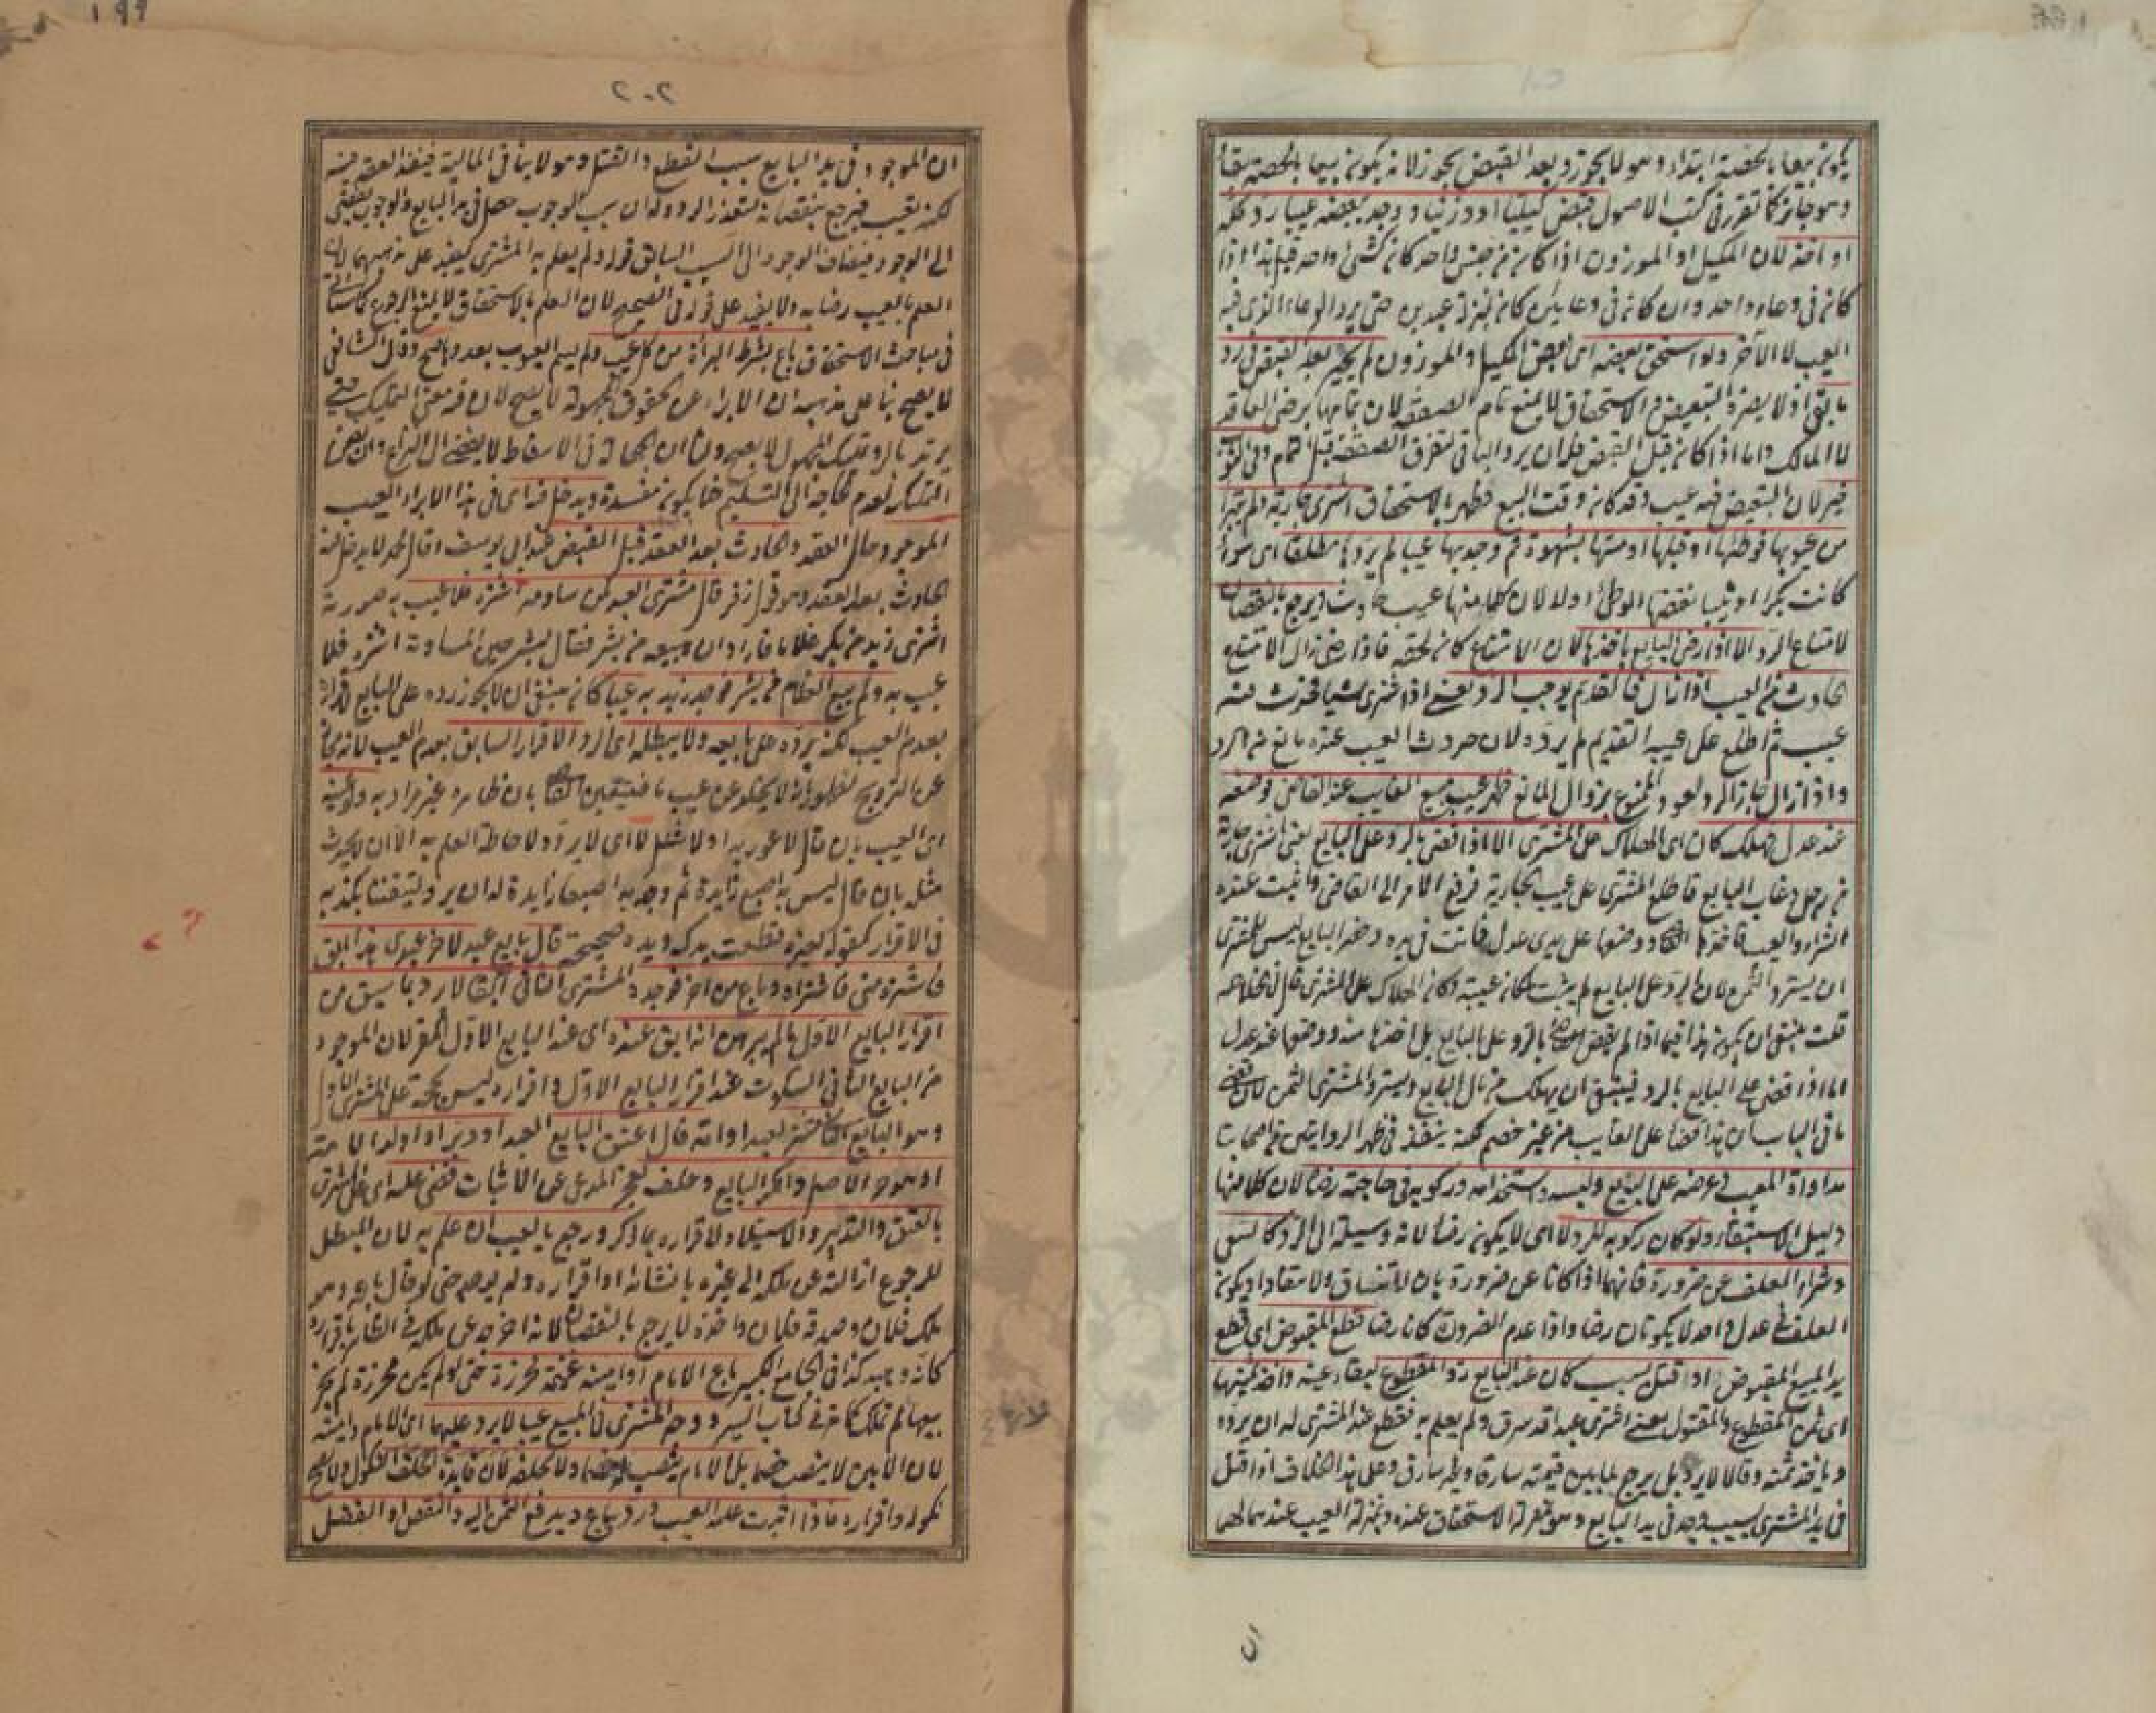 يكون بيعا بالحصة ابتداء وهو لا يجوز وبعد القبض يجوز لانه يكون بيعا بالحصة بقاء
وهو جائز كما تقرر في كتب الاصول قبض كيليا او وزنيا ووجد ببعضه عيبا رد كله
او اخذه لان المكيل او الموزون اذا كان من جنس واحد كان كشئ واحد قيل هذا اذا
كان في وعاء واحد وان كان في وعائين كان بمنزلة عبدين حتى يرد الوعاء الذي فيه
العيب لا الآخر ولو استحق بعضه اى بعض المكيل و الموزون لم يخير بعد القبض في رد
ما بقي اذ لا يضره التبعيض والاستحقاق لا يمنع تمام الصفقة لان تمامها برضى العاقد
لا المالك واما اذا كان قبل القبض فله ان يرد الباقي لتفرق الصفقة قبل تمام وفي الثوب
خير لان التبعيض فيه عيب وقد كان وقت البيع فظهر بالاستحقاق اشترى جارية ولم يتبرأ
من عيوبها فوطئها او قبلها او مسها بشهوة ثم وجد بها عيبا لم يردها مطلقا اى سواء
كانت بكرا او ثيبا نقصها الوطئ اولا لان كلا منها عيب حادث ويرجع بالنقصان
لامتناع الرد الا اذا رضى البايع باخذها لان الامتناع كان لحقه فاذا رضى زال الامتناع
الحادث من العيب اذا زال فالقديم يوجب الرد يعنى اذا اشترى شيئا فحدث منه
عيب ثم اطلع على عيبه القديم لم يرده لان حدوث العيب عنده مانع من الرد
واذا زال جاز الرد لعود الممنوع بزوال المانع ظهر عيب مبيع الغايب عند القاضى فوضعه
عند عدل فهلك كان اى الهلاك على المشترى الا اذا قضى بالرد على البايع يعنى اشترى جارية
من رجل وغاب البايع فاطلع المشترى على عيب الجارية فرفع الامر الى القاضى واثبت عنده
الشراء والعيب فاخذها ووضعها على يدى عدل فماتت في يده وحضر البايع ليس للمشترى
ان يسترد الثمن لان الرد على البايع لم يثبت لمكان غيبته وكان الهلاك على المشترى قال في الخلاصة
قلت ينبغى ان يكون هذا فيما اذا لم يقض بالرد على البايع بل اخذها منه ووضعها عند عدل
اما اذا قضى على البايع بالرد فينبغى ان يهلك من مال البايع ويسترد المشترى الثمن لان
ما في الباب ان هذا قضاء على الغايب من غير خصم لكنه ينفذ في اظهر الروايتين عن اصحابنا
مداواة المعيب وعرضه على البيع ولبسه واستخدامه وركوبه في حاجته رضا لان كلا منها
دليل الاستبقاء ولو كان ركوبه للرد لا اى لا يكون رضا لانه وسيلة الى الرد كالسقى
وشراء العلف عن ضرورة فانهما اذا كانا عن ضرورة بان لا تنساق ولا تنقاد او يكون
العلف في عدل واحد لا يكونان رضا واذا عدم الضرورة كانا رضا قطع المقبوض اى قطع
يد المبيع المقبوض او قتل بسبب كان عند البايع رد المقطوع لبقاء عينه واخذ ثمنهما
اى ثمن المقطوع والمقتول يعنى اشترى عبدا قد سرق ولم يعلم به فقطع عند المشترى له ان يرده
ويأخذ ثمنه وقالا لا يرد بل يرجع لما بين قيمته سارقا وغير سارق وعلى هذا الخلاف اذا قتل
في يد المشترى بسبب وجد في يد البايع وهو بمنزلة الاستحقاق عنده وبمنزلة العيب عندهما لهما
ان
٢٠٢
ان الموجود في يد البايع سبب القطع والقتل وهو لا ينافى المالية فينفذ العقد فيه
لكنه تعيب فيرجع بنقصانه لتعذر الرد وله ان سبب الوجوب حصل في يد البايع والوجوب يفضى
الى الوجود فيضاف الوجود الى السبب السابق قوله ولم يعلم به المشترى يفيد على مذهبهما لان
العلم بالعيب رضا به ولا يفيد على قوله في الصحيح لان العلم بالاستحقاق لا يمنع الرجوع كما سيأتى
في مباحث الاستحقاق باع بشرط البراءة من كل عيب ولم يسم العيوب بعددها صح وقال الشافعى
لا يصح بناء على مذهبه ان الابراء عن الحقوق المجهولة لا يصح لان فيه معنى التمليك حتى
يرتد بالرد وتمليك المجهول لا يصح ولنا ان الجهالة في الاسقاط لا يفضى الى النزاع وان تضمن
التمليك لعدم الحاجة الى التسليم فلا يكون مفسدة ويدخل فيه اى في هذا الابراء العيب
الموجود حال العقد والحادث بعد العقد قبل القبض عند ابى يوسف وقال محمد لا يدخل فيه
الحادث بعد العقد وهو قول زفر قال مشترى العبد لمن ساومه اشتره فلا عيب به صورته
اشترى زيد من بكر غلاما فاراد ان يبيعه من بشر فقال لبشر حين المساومة اشتره فلا
عيب به ولم يبع الغلام من بشر فوجد زيد به عيبا كان ينبغى ان لا يجوز رده على البايع لاقراره
بعدم العيب لكنه يرده على بايعه ولا يبطله اى الرد الاقرار السابق بعدم العيب لانه مجاز
عن الترويج لظهور انه لا يخلو عن عيب ما فيتيقن بان ظاهره غير مراد به ولو عينه
اى العيب بان قال لا عور به او لا شلل لا اى لا يرده لاحاطة العلم به الا ان لا يحدث
مثله بان قال ليس به اصبع زايدة ثم وجد به اصبعا زايدة له ان يرد لتيقننا بكذبه
في الاقرار كقوله لغيره قطعت يدك ويده صحيحة قال بايع عبد لآخر عبدى هذا ابق
فاشتره منى فاشتراه وباع من آخر فوجده المشترى الثانى ابقا لا يرد بما سبق من
اقرار البايع الاول ما لم يبرهن انه ابق عنده اى عند البايع الاول المقر لان الموجود
من البايع الثانى السكوت عند اقرار البايع الاول واقراره ليس بحجة على المشترى الاول
وهو البايع الثانى مشتر لعبد او امة قال اعتق البايع العبد او دبر او اولد الامة
او هو حر الاصل وانكر البايع وحلف لعجز المدعى عن الاثبات قضى عليه اى على المشترى
بالعتق والتدبير والاستيلاد لاقراره بما ذكر ورجع بالعيب ان علم به لان المبطل
للرجوع ازالته عن ملكه الى غيره بانشائه او اقراره ولم يوجد حتى لو قال باعه وهو
ملك فلان وصدقه فلان واخذه لا يرجع بالنقصان لانه اخرجه عن ملكه في الظاهر باقراره
كانه وهبه كذا في الجامع الكبير باع الامام او امينه غنيمة محرزة حتى لو لم يكن محرزة لم يجز
بيعها لم تملك كما مر في كتاب السير ووجد المشترى في المبيع عيبا لا يرد عليهما اى الامام وامينه
لان الامين لا ينصب خصما بل الامام ينصب خصما ولا يحلفه لان فايدة الحلف النكول ولا يصح
نكوله واقراره فاذا اثبت عليه العيب رد ويباع ويدفع الثمن اليه والنقص او الفضل